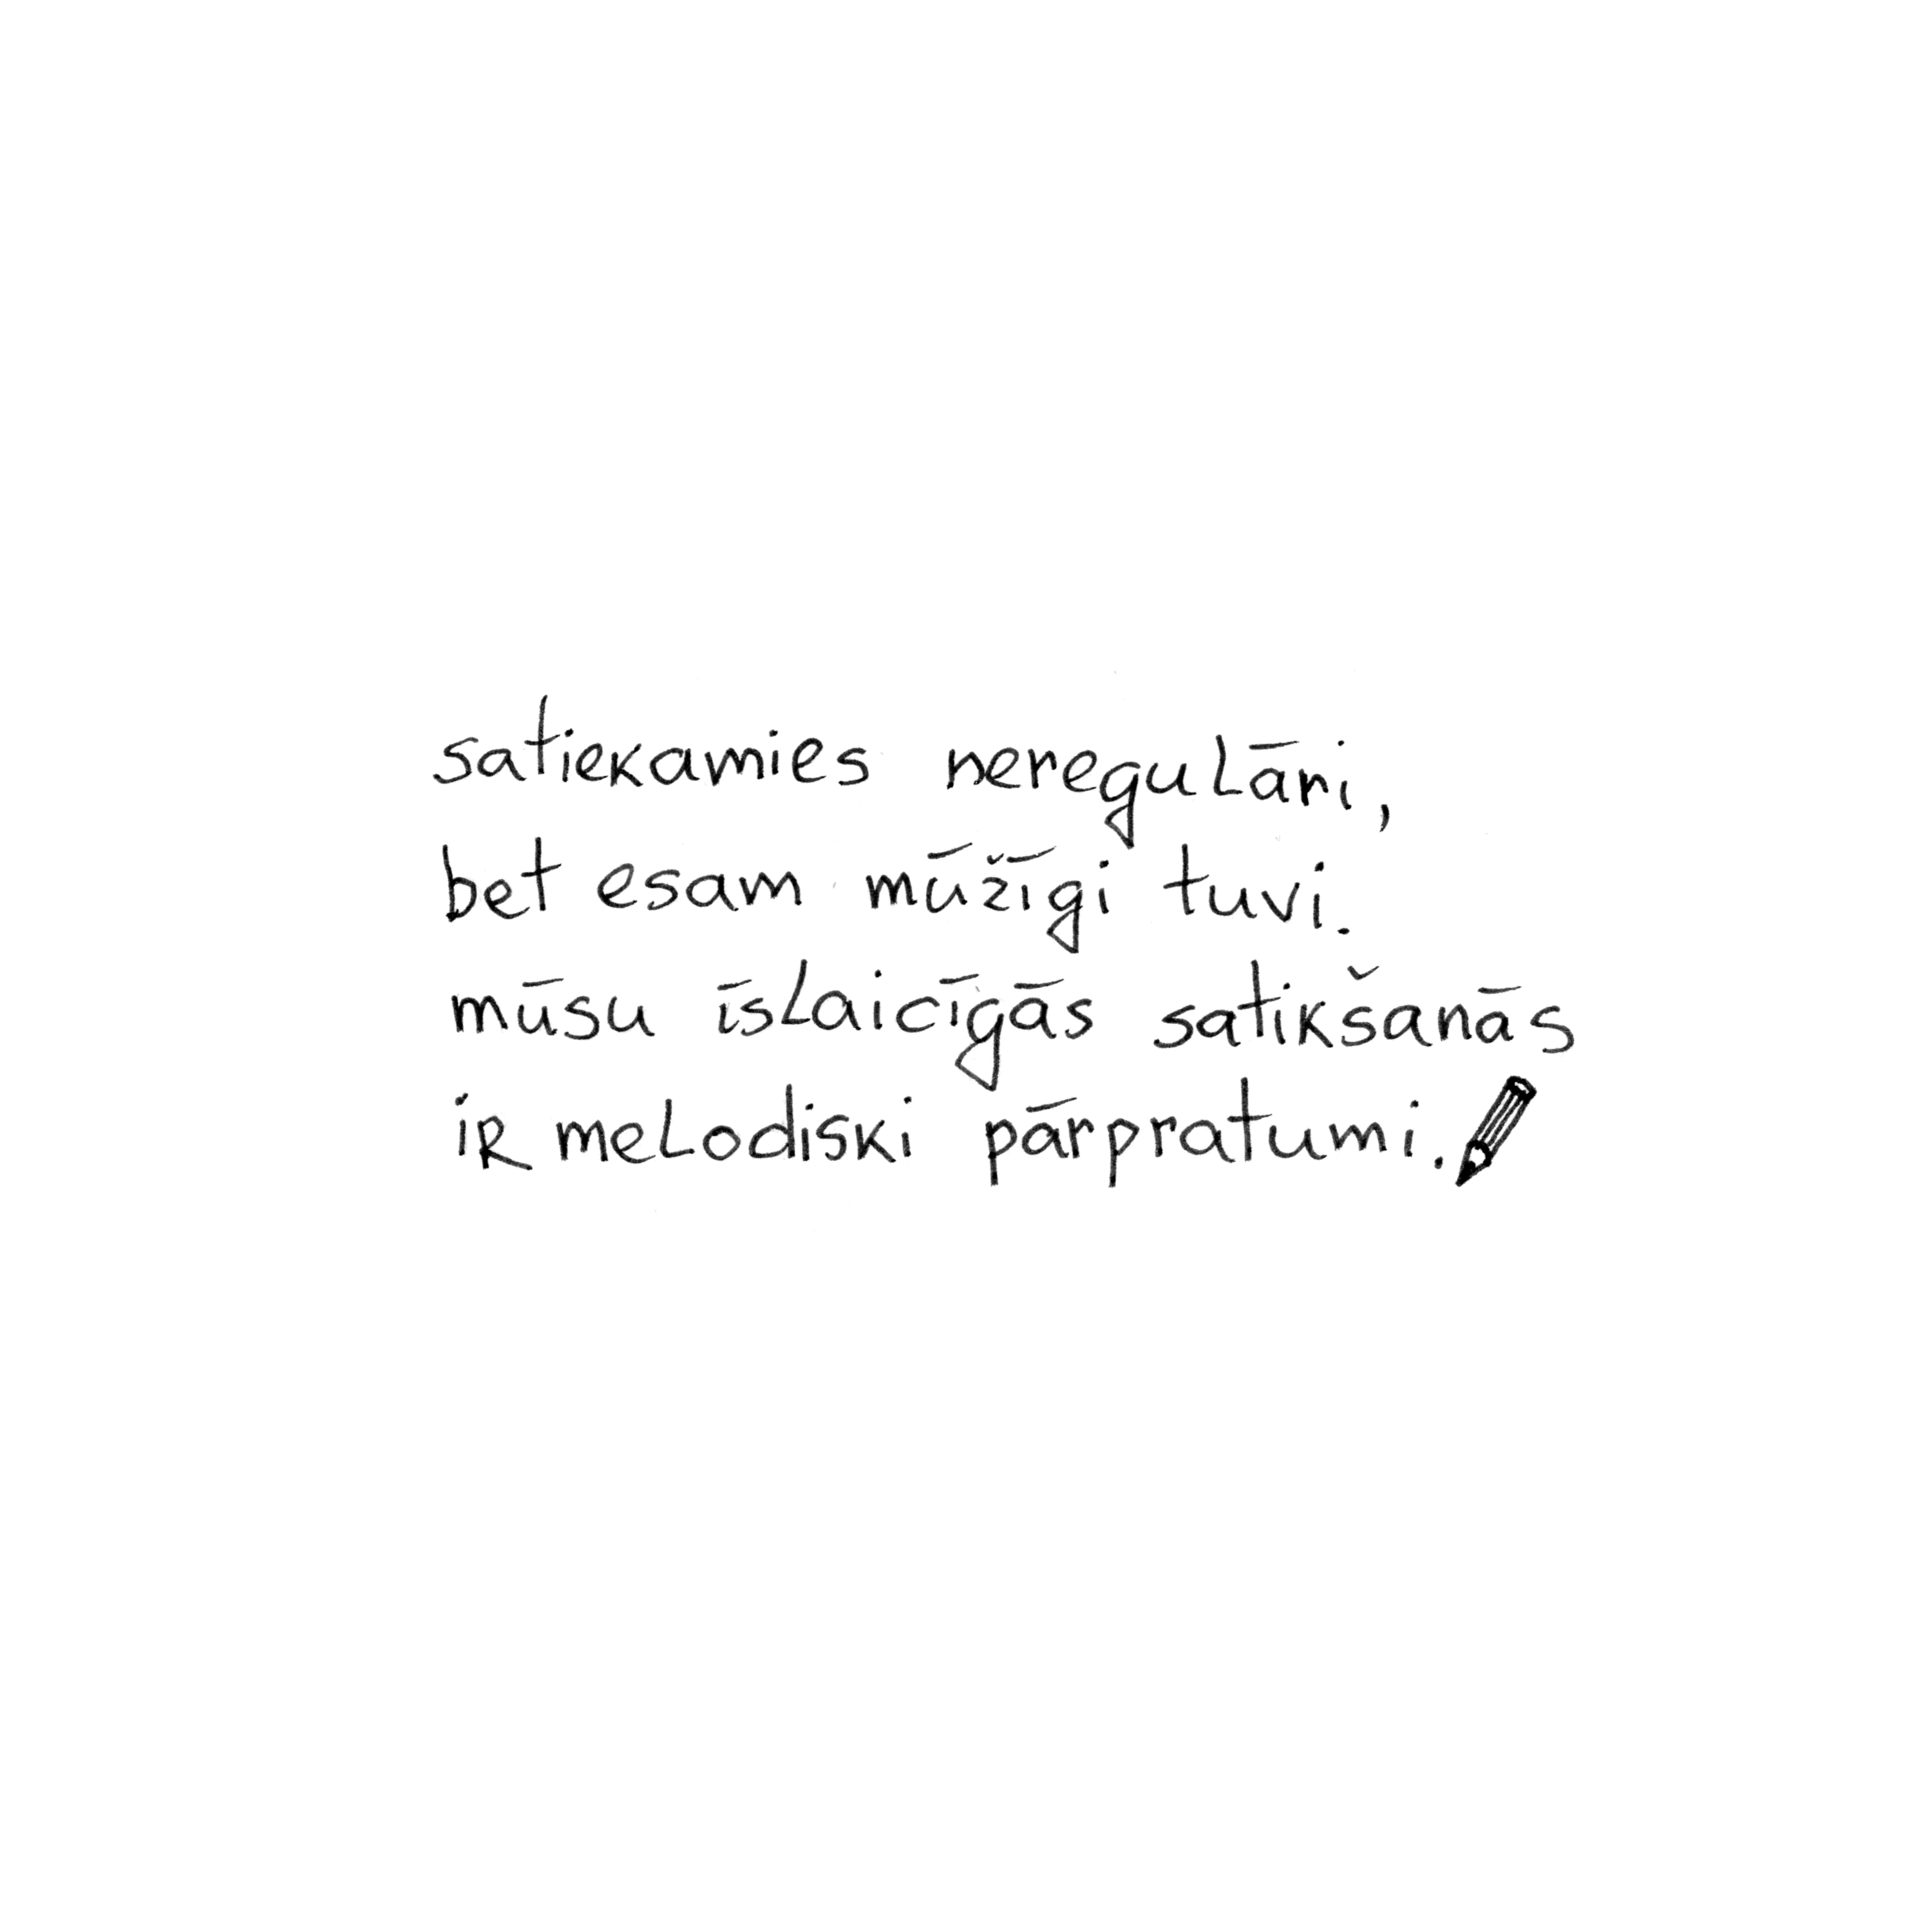 satiekamies neregulāri,
bet esam mūžīgi tuvi.
mūsu īslaicīgās satikšanās
ir melodiski pārpratumi.